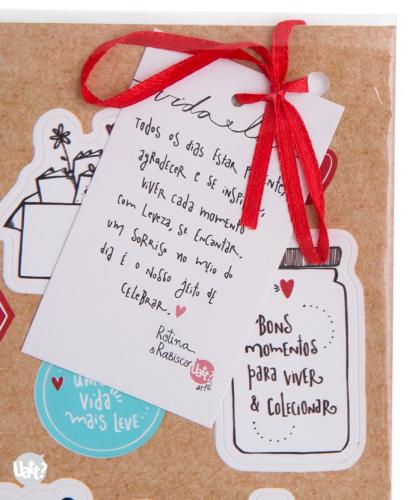 vida
Todos os dias estar
agradecer e se
viver cada momento
com leveza, se encantar.
um sorriso no meio do
dia é o nosso jeito de
celebrar.
Rotina
& Rabisco
Uatt?
arts
Bons
momentos
para viver
& colecionar
uma
vida
mais leve
Uatt?